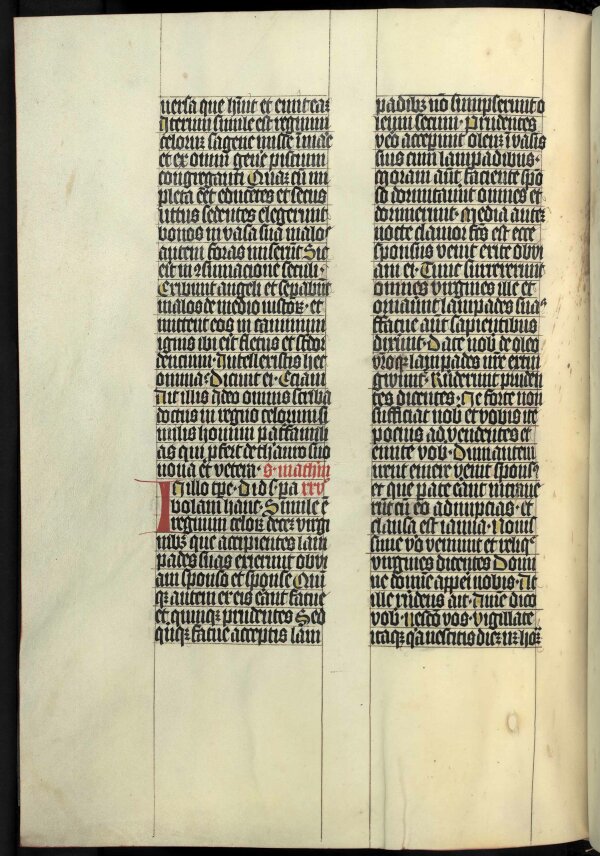 uersa que hũit et emit eaz
Iterum simile est regnum
celoruz sagene misse ĩ mare
et ex omni geñe piscium
congreganti Quaz cũ im
pleta eẽt educẽtes et secus
littus sedentes elegerunt
bonos in vasa sua malos
autem foras miserũt Sic
erit in ɔsumacione seculi ·
Exibunt angeli et sepabũt
malos de medio iustoꝝ · et
mittent eos in caminum
ignis ibi erit fletus et stdor
dencium · Intellexistis hec
omnia · Dicunt ei · Eciam
Ait illis Ideo omnis scriba
doctus in regno celorum si
milis ē homini patfamili
as qui pfert de thauro suo
noua et vetera · S · mathm̃
In illo tpe · Dið ihs · pa xxv
bolam hanc · Simile ẽ
regnum celoꝝ decez virgi
nibꝫ que accipientes lam
pades suas exierunt obvi
am sponso et sponse Quĩ
qꝫ autem ex eis erãt fatue
et quinqꝫ prudentes Sed
quĩqꝫ fatue acceptis lam
padibꝫ nõ sumpserunt o
leum secum · Prudentes
veo acceperunt oleuz ĩ vasis
suis cum lampadibus ·
Moram aũt faciente spõ
so dormitauint omnes et
dormierunt · Media autez
nocte clamor fcs est ecce
sponsus venit exite obvi
am ei · Tunc surrexerunt
omnes virgines ille et
ornaũnt lampades suas
Fatue aũt sapientibus
dixerunt · Date nob de oleo
vroqꝫ lampades nre extin
gwũnt · Rñderunt pruden
tes dicentes · Ne forte non
sufficiat nob et vobis ite
pocius ad vendentes et
emite vob · Dum autem
irent emere venit sponsꝰ
et que pate erãt intraue
rũt cũ eo ad nupcias · et
clausa est ianua · Nouis
sime vo veniunt et reliqꝫ
virgines dicentes Domi
ne domine aperi nobis · At
ille rñdens ait · Amẽ dico
vob · nescio vos · vigillate
itaqꝫ qa nescitis diez nꝫ hoꝝ